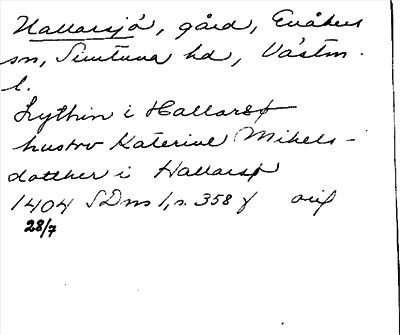 Hallarsjö, gård, Enåkers
sn, Simtuna hd, Västm.
l.
Lythin i Hallarsø
hustro Katerine Mikels-
dotther i Hallarsø
1404 SDns 1, s. 358 orig
28/7